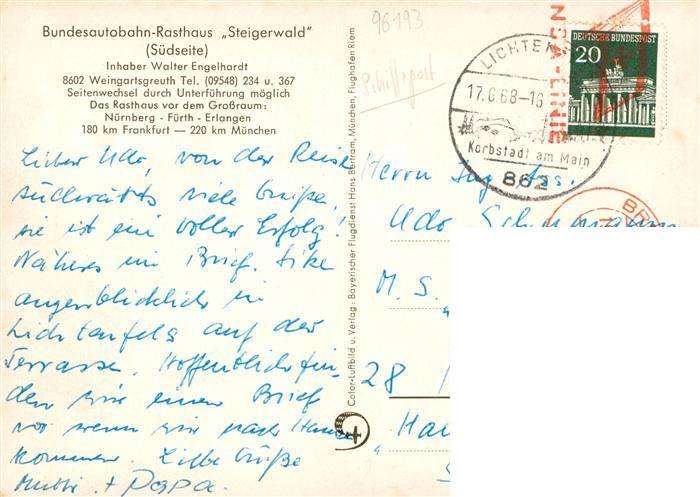 96193
Bundesautobahn-Rasthaus „Steigerwald"
(Südseite)
Inhaber Walter Engelhardt
8602 Weingartsgreuth Tel. (09548) 234 u. 367
Seitenwechsel durch Unterführung möglich
Das Rasthaus vor dem Großraum:
Nürnberg - Fürth - Erlangen
180 km Frankfurt — 220 km München
Lieber Udo, von der Reise
südwärts viele Grüße,
sie ist ein voller Erfolg!
Näheres im Brief. Sitze
augenblicklich in
Lichtenfels auf der
Terrasse. Hoffentlich fin-
den wir einen Brief
vor wenn wir nach Hause
kommen. Liebe Grüße
Mutti + Papa.
Color-Luftbild u. Verlag: Bayerischer Flugdienst Hans Bertram, München, Flughafen Riem
Schiffspost
LICHTEN
17.6.68-16
Korbstadt am Main
862
DEUTSCHE BUNDESPOST
20
NSA-LINIE
BR
Herrn Ing. Ass.
Udo
M. S.
28
"Han